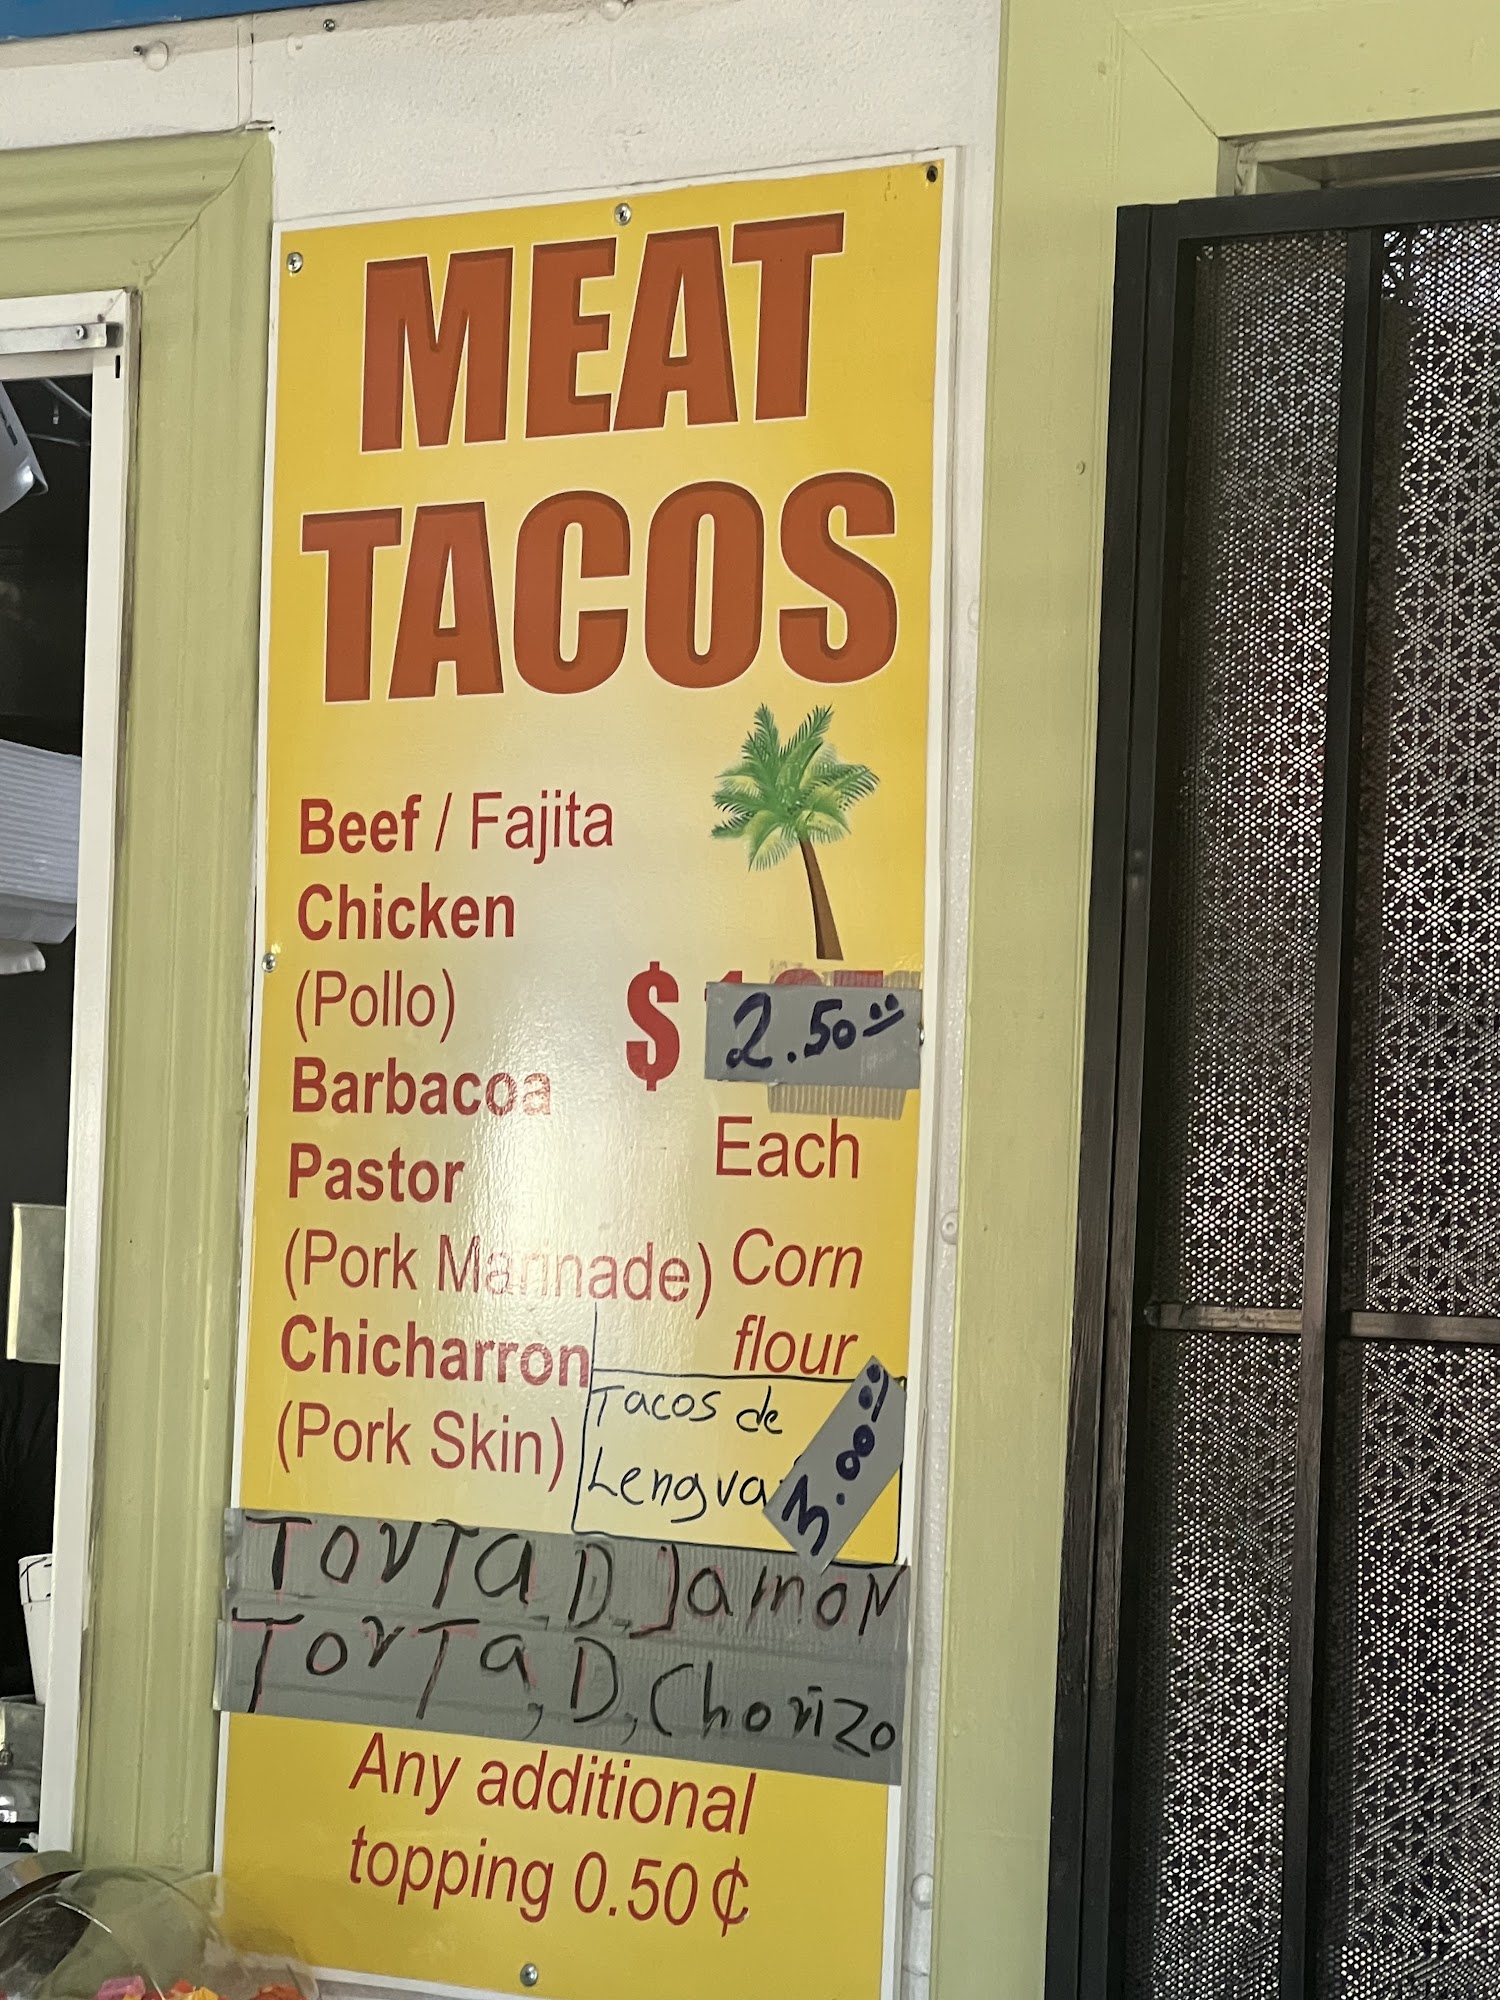 MEAT
TACOS
Beef / Fajita
Chicken
(Pollo)
$ 2.50
Barbacoa
Each
Pastor
(Pork Marinade)
Corn
flour
Chicharron
(Pork Skin)
Tacos de
Lengua
3.00
TorTa, D, Jamon
TorTa, D, Chorizo
Any additional
topping 0.50¢